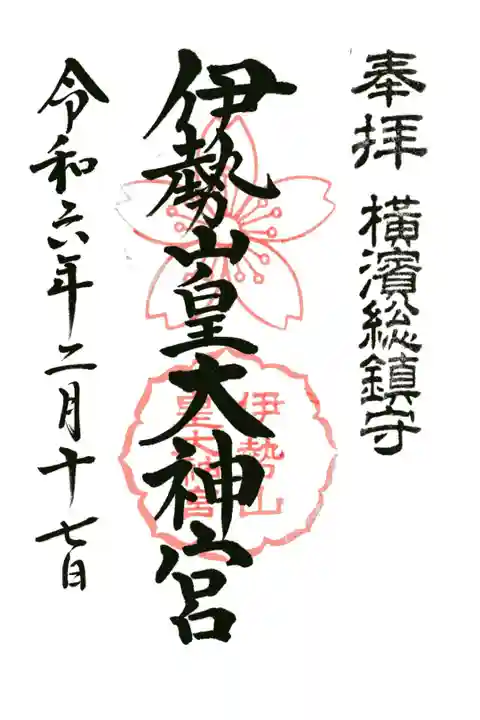 奉拝 横濱総鎮守
伊勢山皇大神宮
伊勢山
皇大神宮
令和六年二月十七日